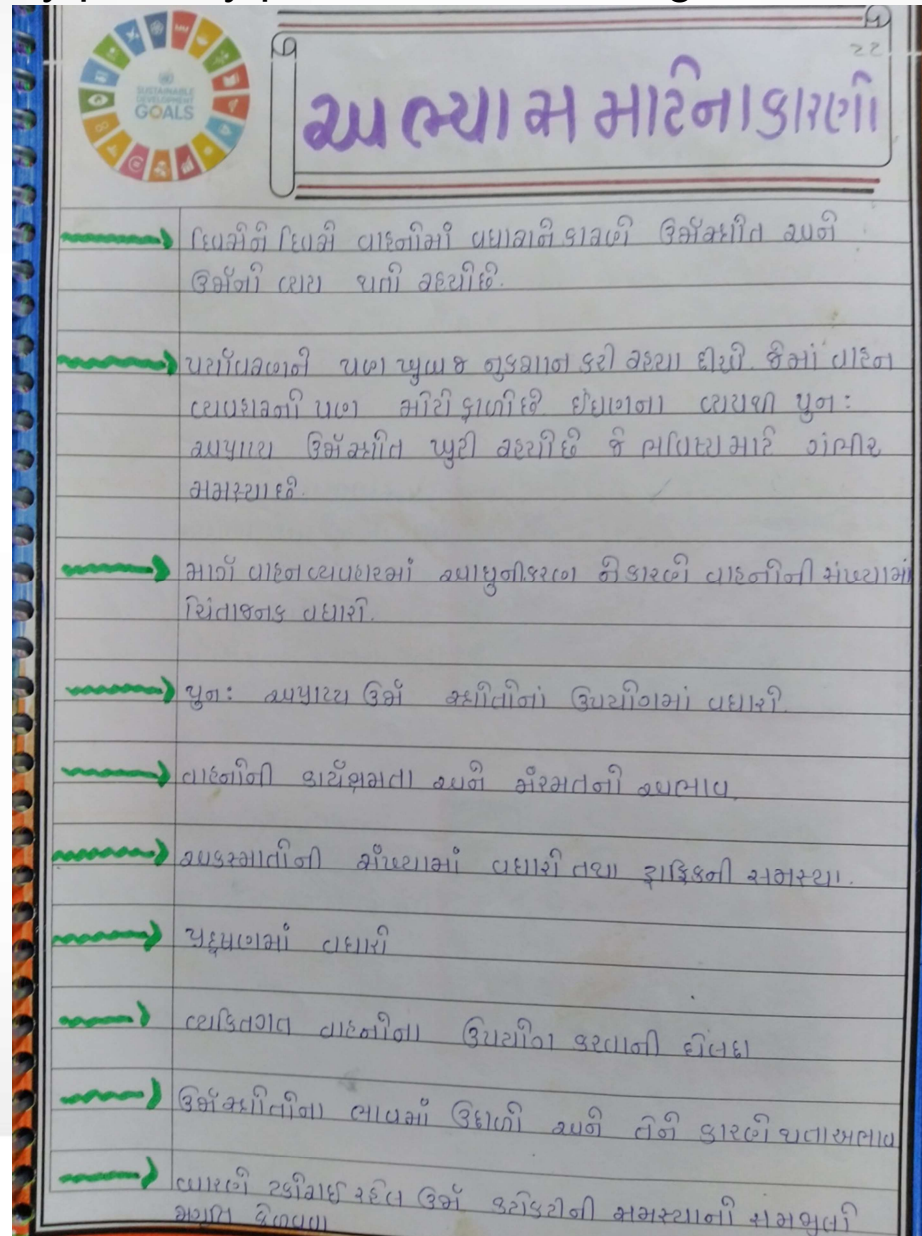 22
SUSTAINABLE
DEVELOPMENT
GOALS
અભ્યાસ માટેના કારણો
દિવસેને દિવસે વાહનોમાં વધારાને કારણે ઉર્જાસ્ત્રોત અને
ઉર્જાનો વ્યય થતો રહયોછે.
પર્યાવરણને પણ ખુબ જ નુકશાન કરી રહયા છીએ. જેમાં વાહન
વ્યવહારનો પણ મોટો ફાળોછે ઈંધણના વ્યયથી પુનઃ
અપ્રાપ્ય ઉર્જાસ્ત્રોત ખુટી રહયોછે જે ભવિષ્ય માટે ગંભીર
સમસ્યા છે.
માર્ગ વાહન વ્યવહારમાં આધુનીકરણ ને કારણે વાહનોની સંખ્યામાં
ચિંતાજનક વધારો.
પુનઃ અપ્રાપ્ય ઉર્જા સ્ત્રોતોનાં ઉપયોગમાં વધારો.
વાહનોની કાર્યક્ષમતા અને મરંમતનો અભાવ.
અકસ્માતોની સંખ્યામાં વધારો તથા ટ્રાફિકની સમસ્યા.
પ્રદૂષણમાં વધારો
વ્યકિતગત વાહનોના ઉપયોગ કરવાની ઘેલછા
ઉર્જાસ્ત્રોતોના ભાવમાં ઉછાળો અને તેને કારણે થતા અભાવ
બારણે ટકોરાઈ રહેલ ઉર્જા કટોકટીની સમસ્યાની સામુહી
કેળવવા